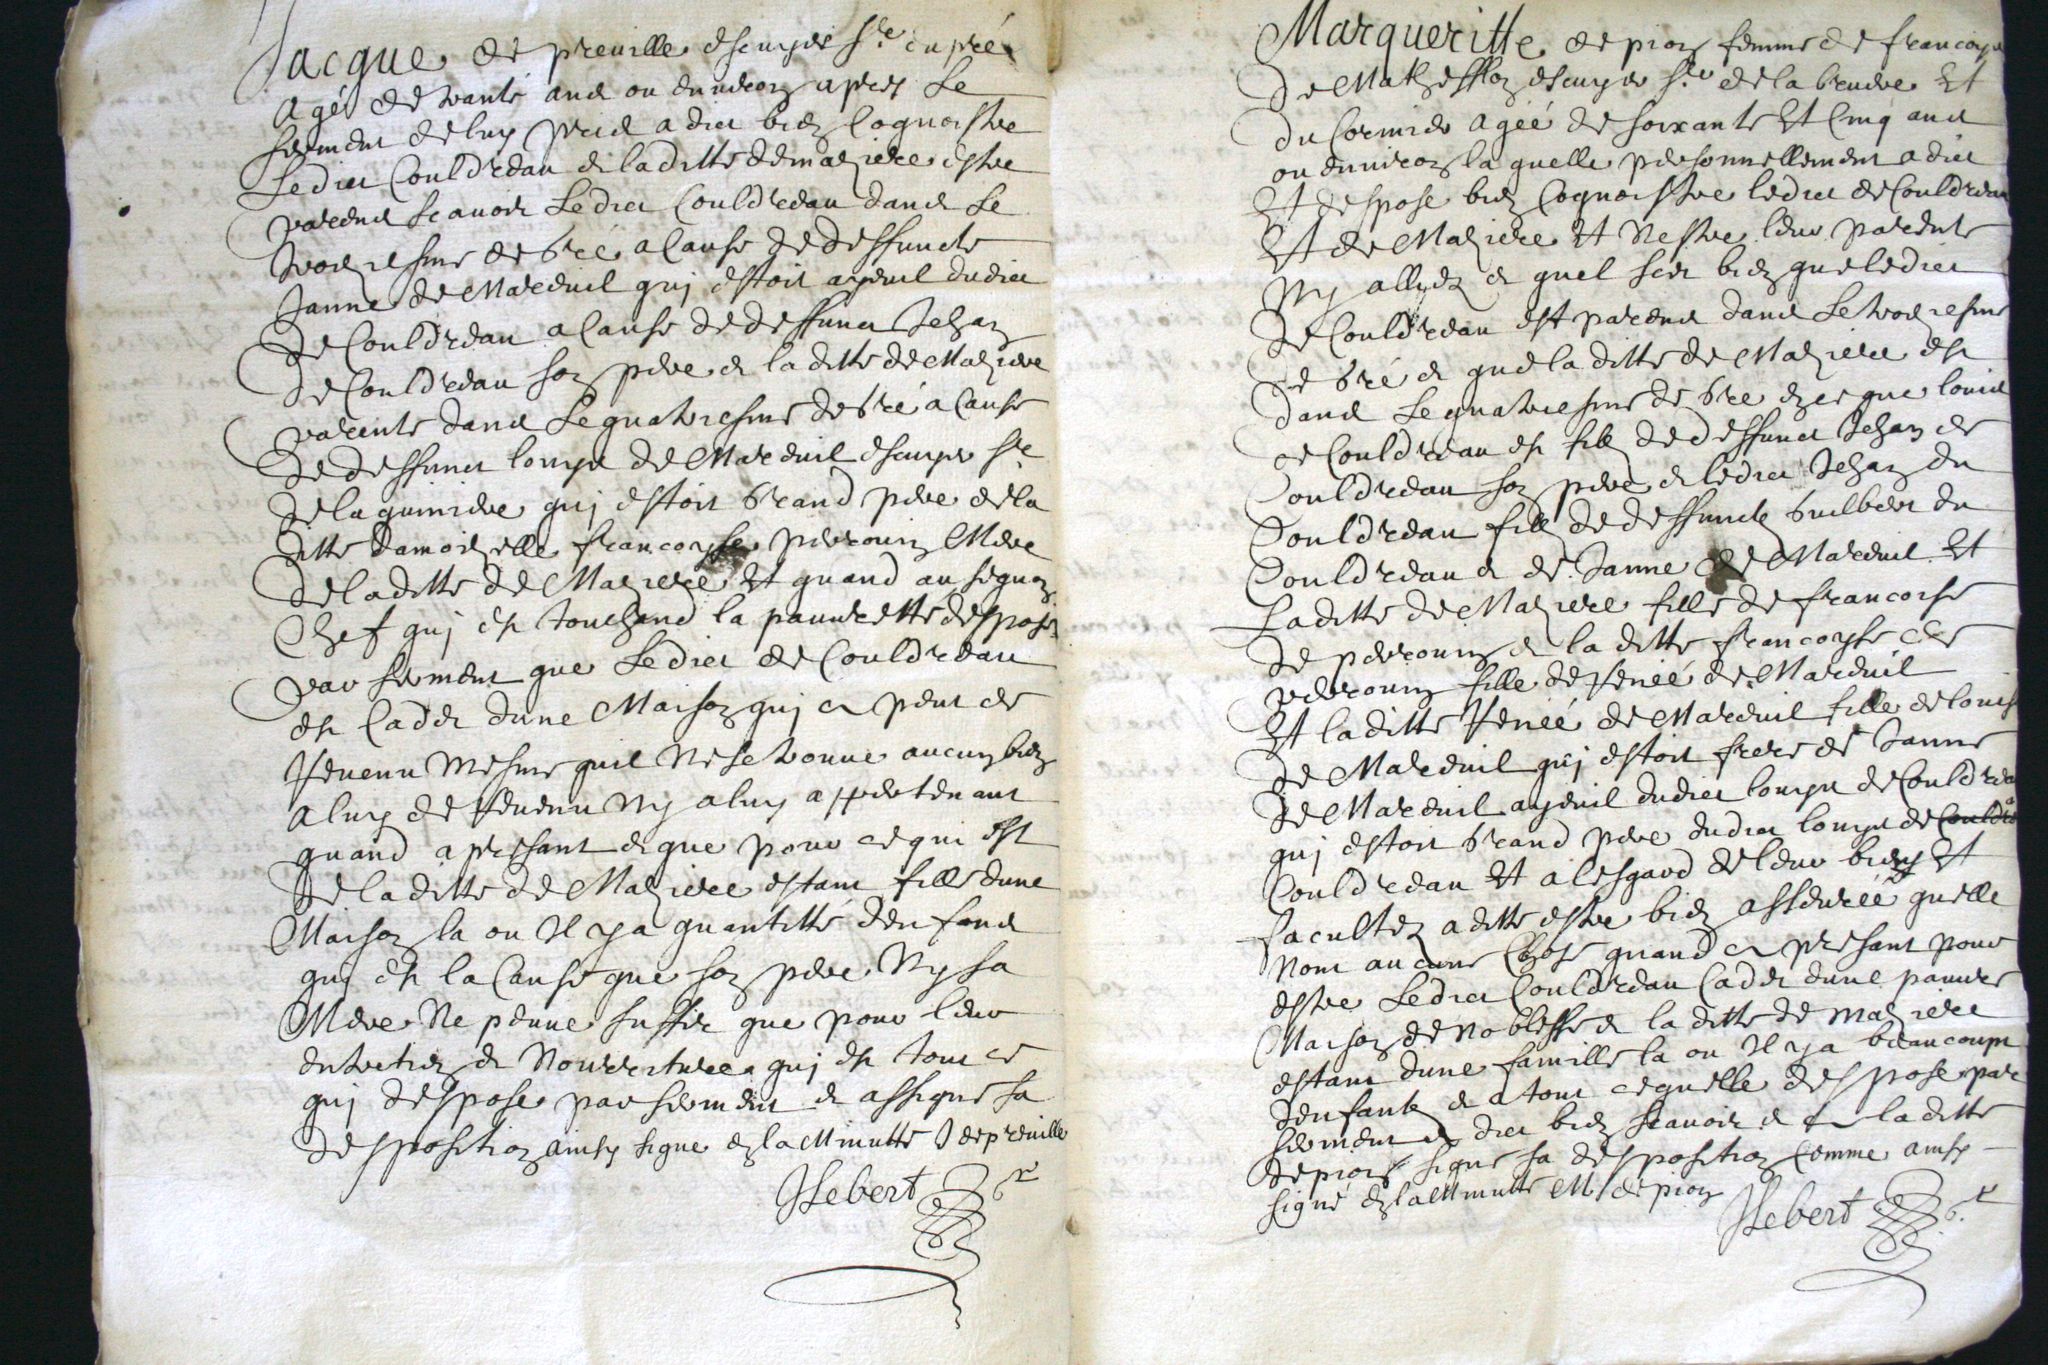 Jacque de preuille escuyer sr du pré
agé de trante ans ou enuiron apres le
serment de luy pris a dict bien Cognoistre
Ledict Couldreau et laditte de maziere estre
parens scauoir Ledict Couldreau dans Le
troiziesme degré a Cause de deffuncte
Janne de Mareuil quj estoit ayeul dudict
de Couldreau a Cause de deffunct Jehan
de Couldreau son pere et laditte de Maziere
parente dans Le quatriesme degré a Cause
de deffunct louys de Mareuil escuyer sr
de la guiniere quj estoit Grand pere de la
ditte damoizelle francoyse perrouin Mere
de laditte de Maziere Et quand au segond
Chef quj est touchand la pauuretté despose
par serment que Ledict de Couldreau
est Cadet dune Maison quj a peut de
Reuenu Mesme quil Ne se trouue aucun bien
a luy de Reuenu Ny a luy appertenant
quand apresant et que pour ce qui est
de laditte de Maziere estant fille dune
Maison la ou Il y a quantitté denfans
quj est la Cause que son pere Ny sa
Mere Ne peuue suffir que pour leur
entretien et Nourriture quj est tout ce
quj despose par serment et a signé sa
desposition ainsy signe en la Minutte J depreuille
Hebert Gr
Margueritte de pion femme de francoys
de Mathefflon escuyer sr de la
du Cormier agéé de soixante Et Cinq ans
ou enuiron laquelle personnellement a dict
Et despose bien Cognoistre ledict de Couldreau
Et de Maziere Et Nestre leur parente
Ny allyéz et quel scet bien queledict
de Couldreau est parens dans Le troiziesme
degré et que la ditte de Maziere est
dans Le quatriesme degre en ce que louis
de Couldreau est filz de deffunct Jehan de
Couldreau son pere et ledict Jehan du
Couldreau filz de deffunctz Guilber du
Couldreau et de Janne de Mareuil Et
Laditte de Maziere fille de francoise
de perrouin et la ditte francoyse de
perrouin fille de Renéé de Mareuil
Et laditte Renéé de Mareuil fille de louis
de Mareuil quj estoit frere de Janne
de Mareuil ayeuil dudict louys de Couldreau
quj estoit Grand pere dudict louys de Couldre
Couldreau Et a lesgard de leur biens Et
facultez a ditte estre bien asseuréé quelle
Nont aucune Chose quand a presant pour
estre Ledict Couldreau Cadet dune pauure
Maison de Noblesse et la ditte de maziere
estant dune famille la ou Il y a beaucoup
denfantz et a tout cequelle despose par
serment et dict bien scauoir et a laditte
de pion signé sa desposition Comme ainsy
signé en la Minutte M de pion Hebert Gr